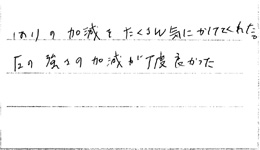 はりの加減をたくさん気にかけてくれた。
圧の強さの加減が丁度良かった